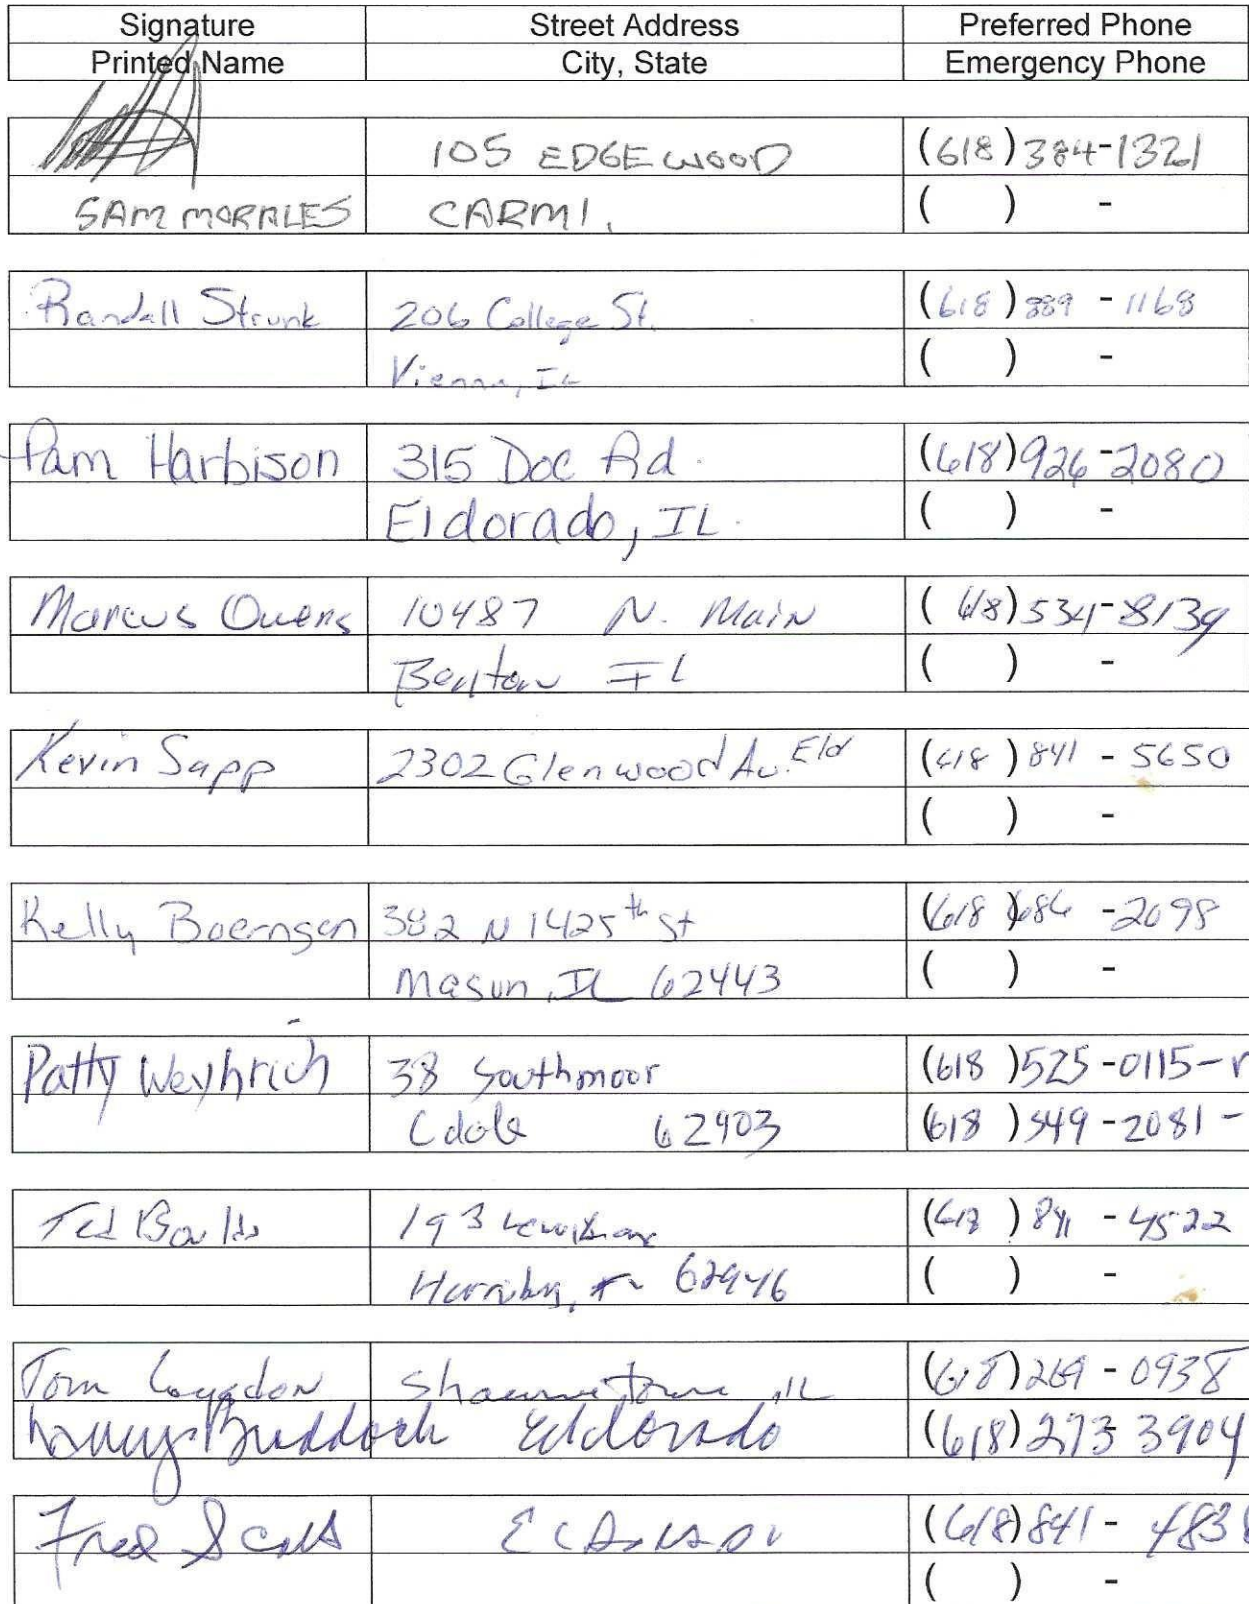 Signature Street Address Preferred Phone
Printed Name City, State Emergency Phone
105 EDGEWOOD (618) 384-1321
SAM MORALES CARMI, ( ) -
Randall Strunk 206 College St. (618) 889 - 1168
Vienna, IL ( ) -
Pam Harbison 315 Doc Rd. (618) 926-2080
Eldorado, IL. ( ) -
Marcus Owens 10487 N. Main (618) 534-8139
Benton IL ( ) -
Kevin Sapp 2302 Glenwood Av. Eld (618) 841 - 5650
( ) -
Kelly Boerngen 382 N 1425th St (618) 686 - 2098
Mason, IL 62443 ( ) -
Patty Weyhrich 38 Southmoor (618) 525-0115-r
Cdale 62903 (618) 549-2081-
Ted 193 (618) 841 - 4522
62946 ( ) -
Tom Shawneetown IL (618) 269 - 0938
Braddock Eldorado (618) 273 3904
Fred (618) 841 -
( ) -